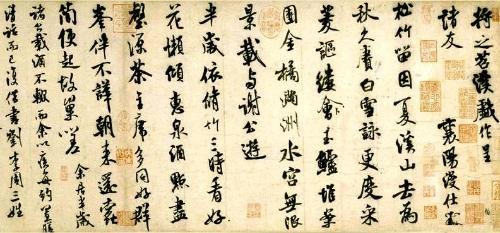 將之苕溪戲作呈
諸友
襄陽漫仕黻
松竹留因夏溪山去為
秋久賡白雪詠更度采
菱謳縷會玉鱸堆案
團金橘滿洲水宮無限
景載與謝公遊
半歲依脩竹三時看好
花懶傾惠泉酒點盡
壑源茶主席多同好群
峯伴不譁朝來還蠹
簡便起故巢嗟 余居半歲
諸公載酒不輟而余以疾每約置膳
清話而已復借書劉李周三姓